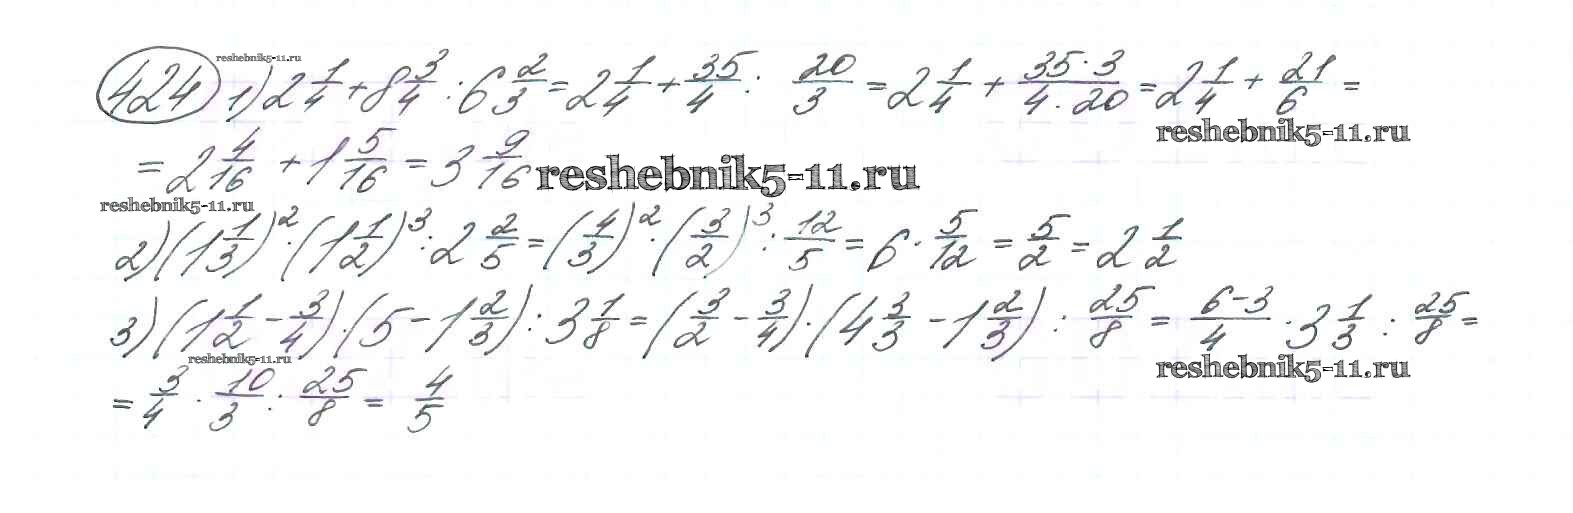 reshebnik5-11.ru
424 1) 2 1/4 + 8 3/4 : 6 2/3 = 2 1/4 + 35/4 : 20/3 = 2 1/4 + 35·3/4·20 = 2 1/4 + 21/6 =
reshebnik5-11.ru
= 2 4/16 + 1 5/16 = 3 9/16 reshebnik5-11.ru
reshebnik5-11.ru
2) (1 1/3)² · (1 1/2)³ : 2 2/5 = (4/3)² · (3/2)³ : 12/5 = 6 · 5/12 = 5/2 = 2 1/2
3) (1 1/2 - 3/4) · (5 - 1 2/3) : 3 1/8 = (3/2 - 3/4) · (4 3/3 - 1 2/3) : 25/8 = 6-3/4 · 3 1/3 : 25/8 =
reshebnik5-11.ru
reshebnik5-11.ru
= 3/4 · 10/3 : 25/8 = 4/5